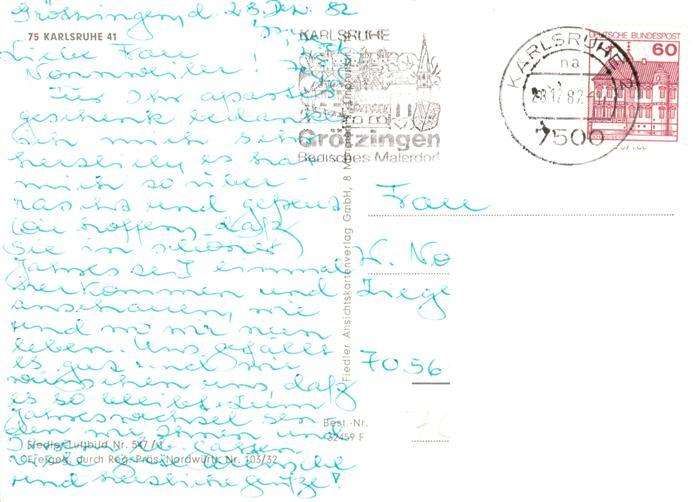 Grötzingen, d. 28. Dez. 82
75 KARLSRUHE 41
Liebe Frau
Nonnweiler!
Für Ihr apartes
geschenk bedanke
ich mich sehr
herzlich, es hat
mich so über-
rascht und gefreut
wir hoffen, daß
Sie in
Jahreszeit einmal
herkommen und
anschauen, wie
und wo wir nun
leben. Uns gefällt
es gut und wir
wünschen uns, daß
es so bleibt. Zum
Jahreswechsel sen-
den wir Ihnen und
und herzliche Grüße!
Fiedler-Luftbild Nr. 547/
Freigeg. durch Reg.-Präs. Nordwürtt. Nr. 103/32
Best.-Nr.
32459 F
Fiedler Ansichtskartenverlag GmbH, 8 München
KARLSRUHE
Grötzingen
Badisches Malerdorf
KARLSRUHE 2
na
28.12.82
7500
DEUTSCHE BUNDESPOST
60
Frau
K. No
Ziege
7056